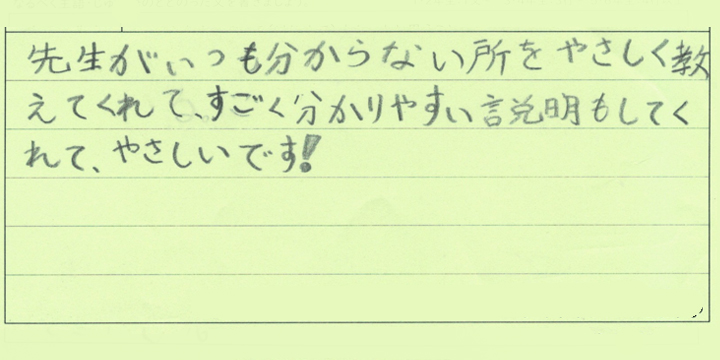 先生がいつも分からない所をやさしく教
えてくれて、すごく分かりやすい説明もしてく
れて、やさしいです!